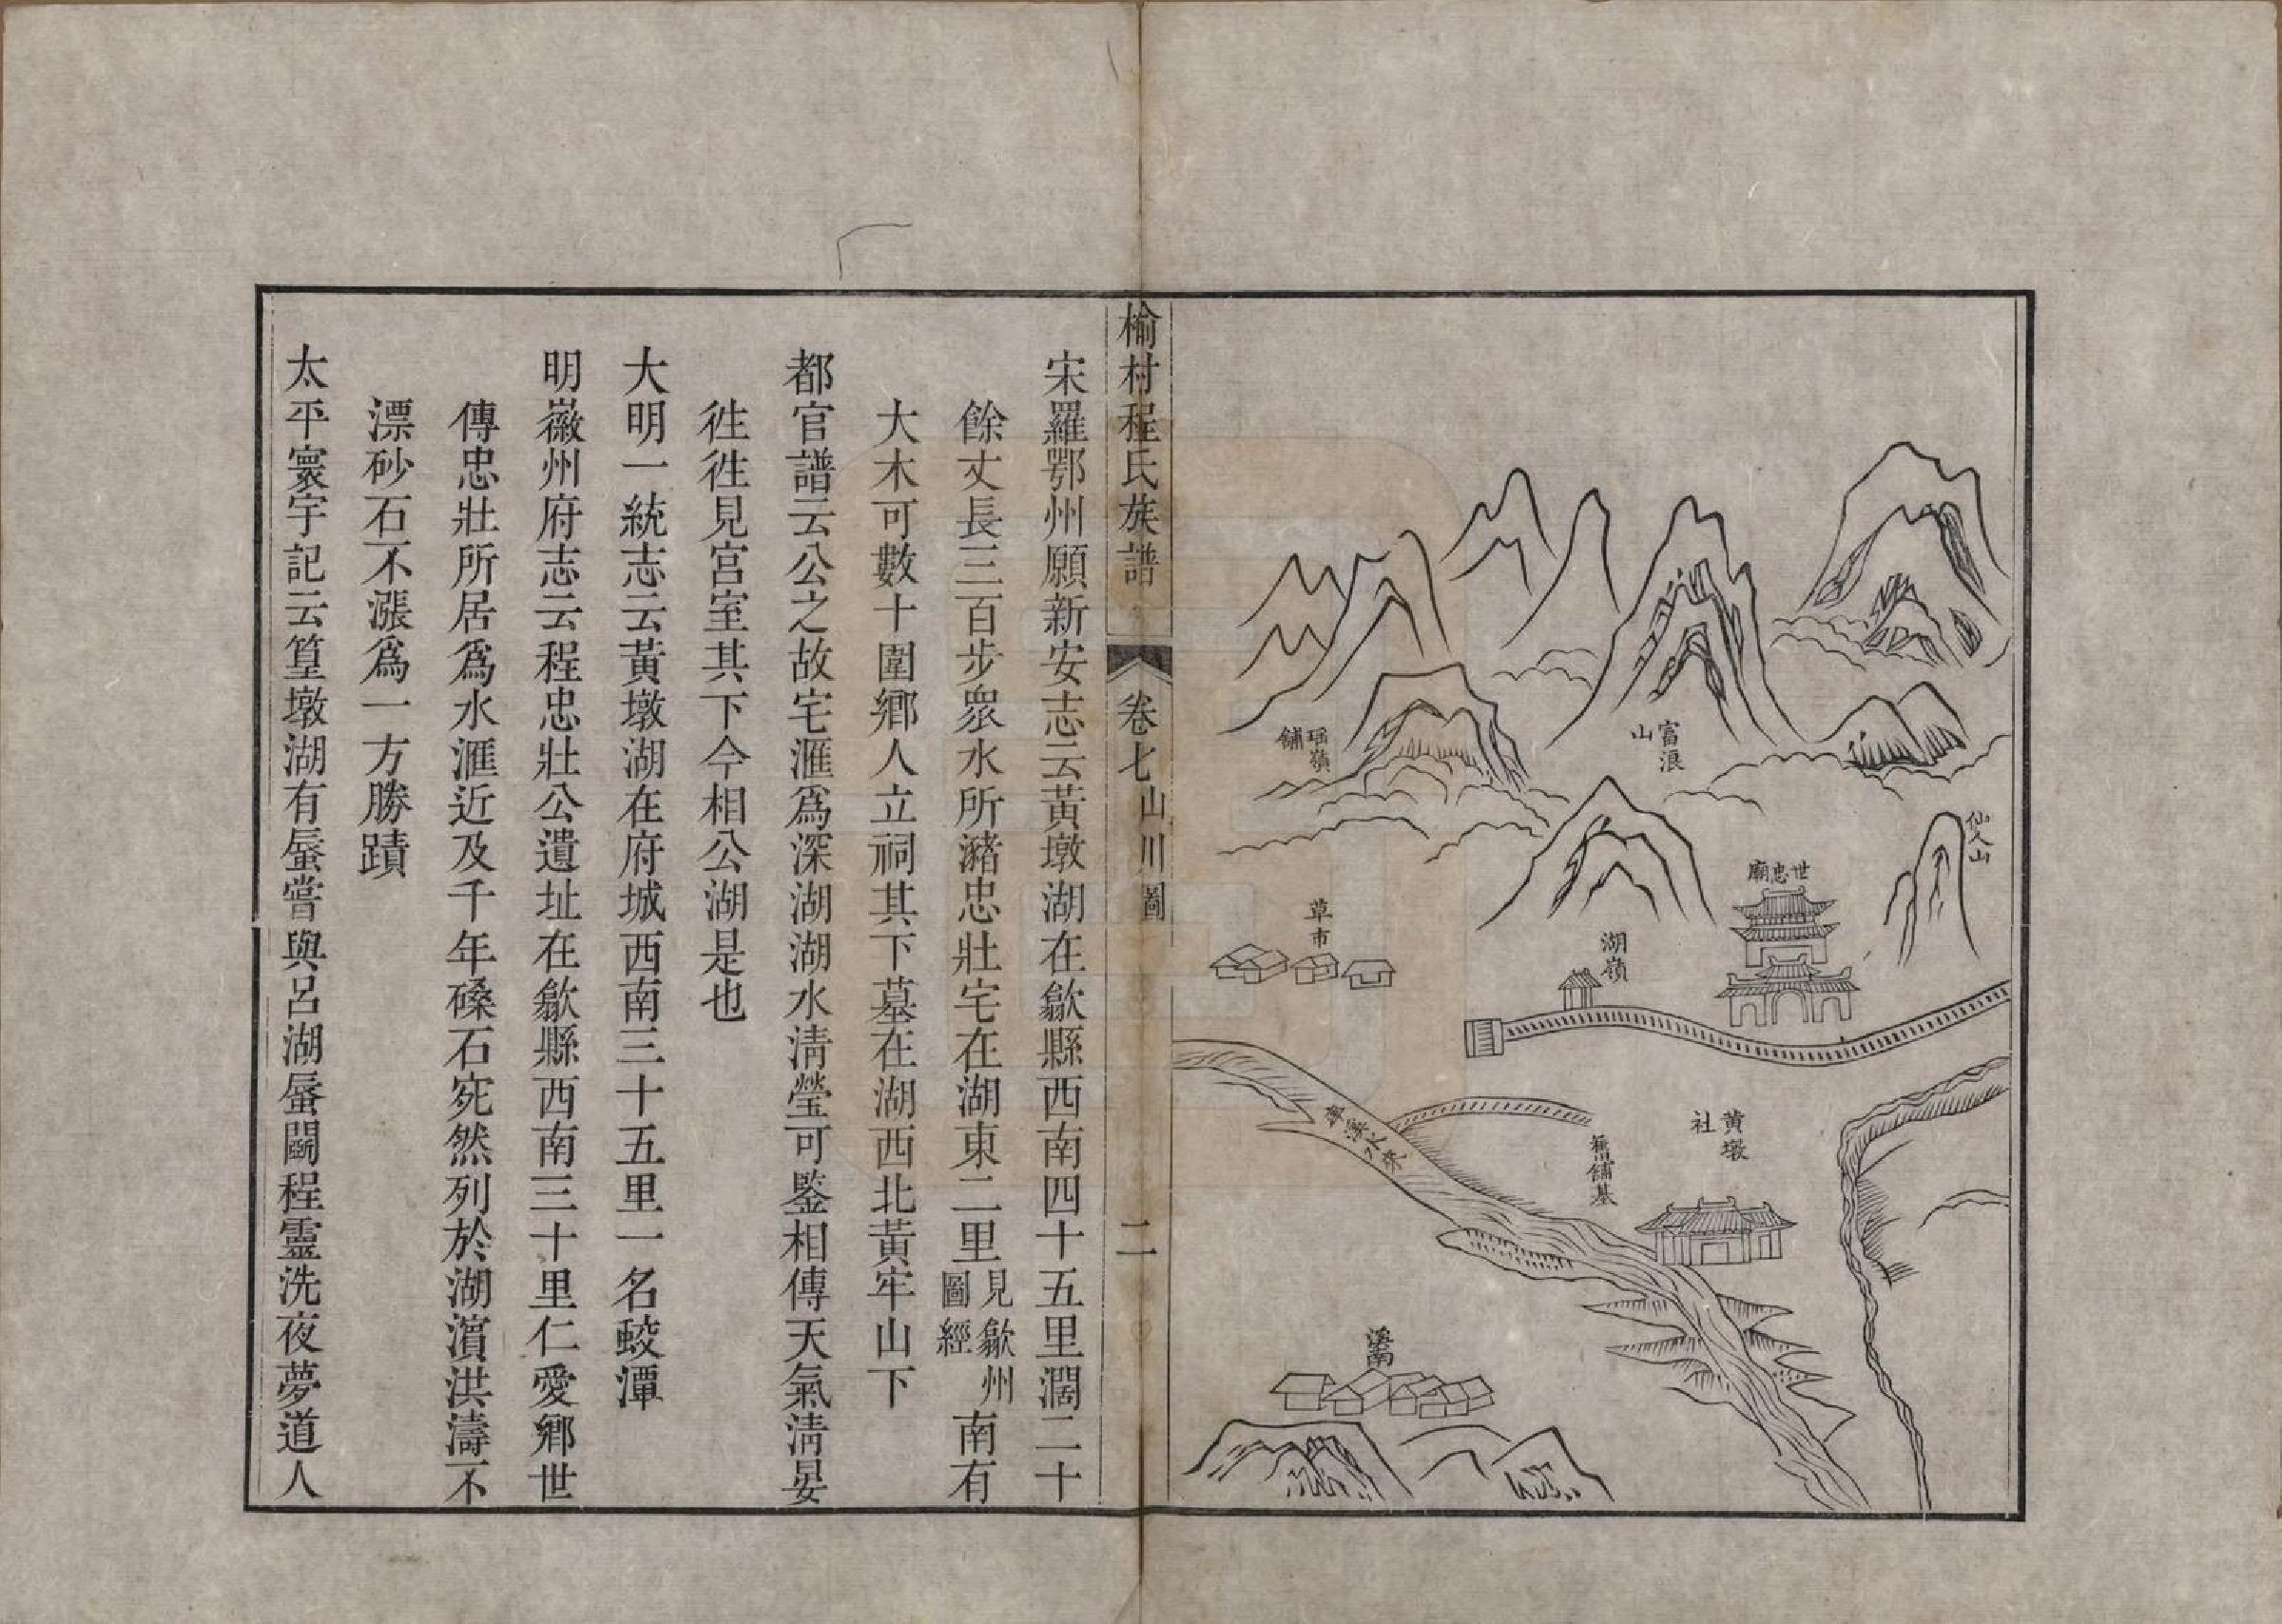 仙人山
富浪
山
瑶嶺
舖
世忠廟
湖嶺
草市
黃墩
社
舊舖基
溪南
榆村程氏族譜
卷七
山川圖
二
宋羅鄂州願新安志云黃墩湖在歙縣西南四十五里濶二十
餘丈長三百步衆水所瀦忠壯宅在湖東二里見歙州圖經南有
大木可數十圍鄉人立祠其下墓在湖西北黃牢山下
都官譜云公之故宅滙爲深湖湖水淸瑩可鍳相傳天氣淸晏
徃徃見宮室其下今相公湖是也
大明一統志云黃墩湖在府城西南三十五里一名蛟潭
明徽州府志云程忠壯公遺址在歙縣西南三十里仁愛鄉世
傳忠壯所居爲水滙近及千年磉石宛然列於湖濵洪濤不
漂砂石不漲爲一方勝蹟
太平寰宇記云篁墩湖有蜃嘗與呂湖蜃鬭程靈洗夜夢道人